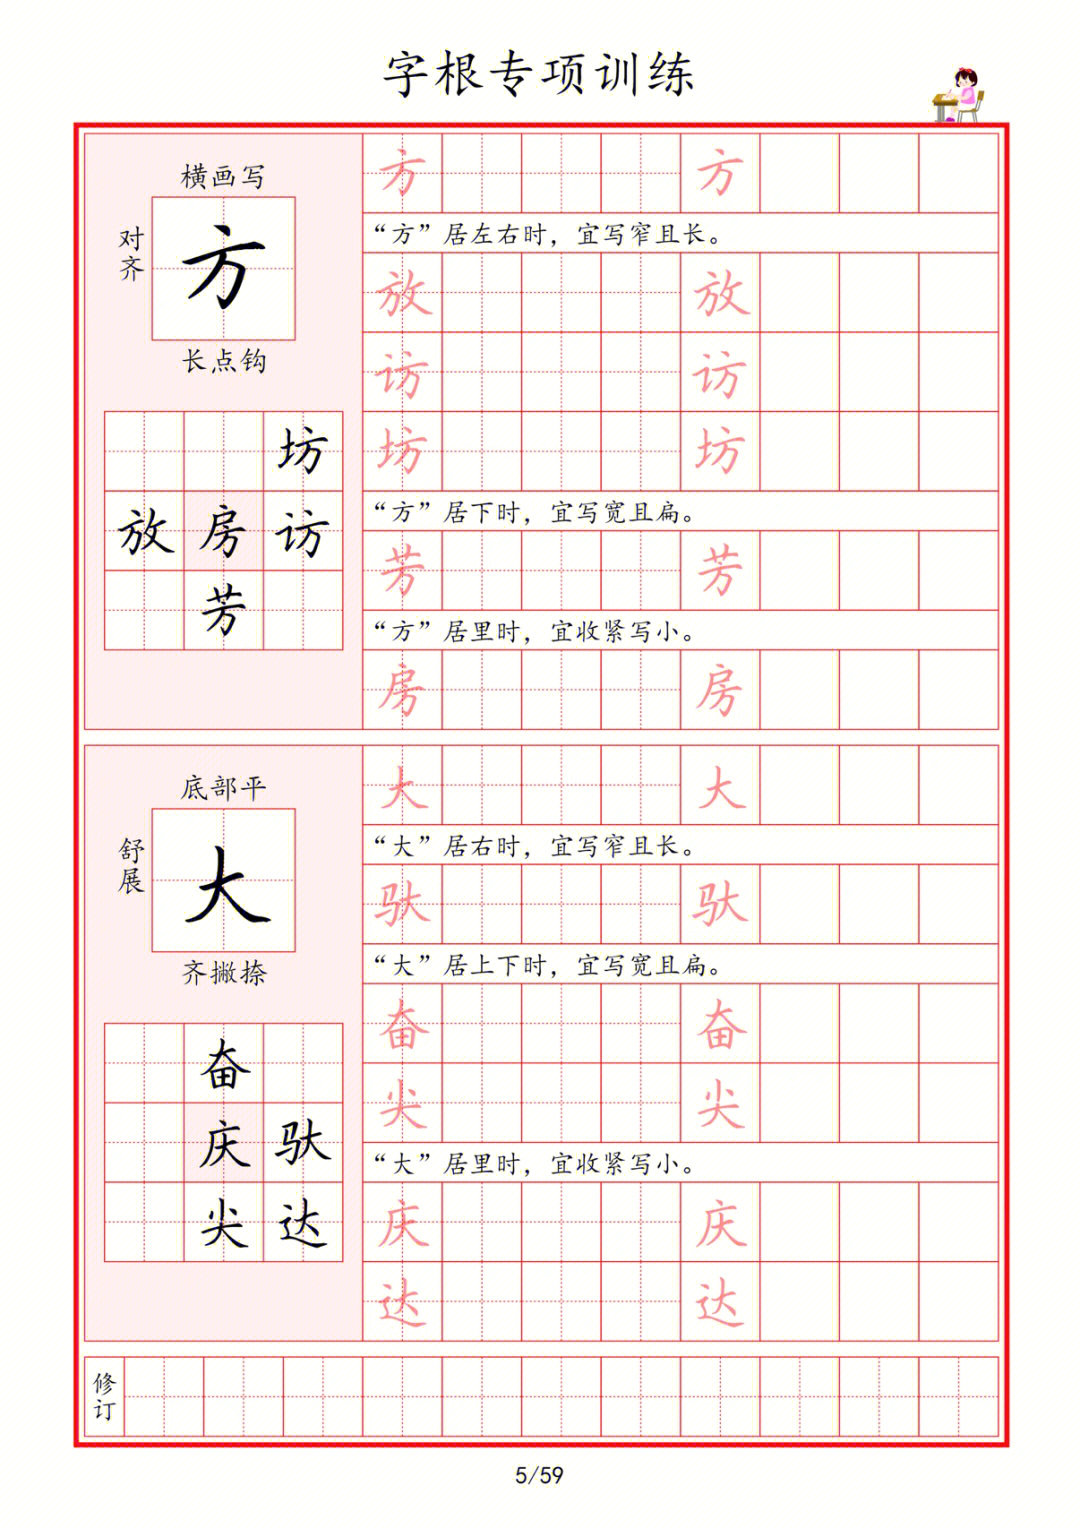 字根专项训练
横画写
对齐
方
长点钩
坊
放 房 访
芳
方 方
“方”居左右时，宜写窄且长。
放 放
访 访
坊 坊
“方”居下时，宜写宽且扁。
芳 芳
“方”居里时，宜收紧写小。
房 房
底部平
舒展
大
齐撇捺
奋
庆 驮
尖 达
大 大
“大”居右时，宜写窄且长。
驮 驮
“大”居上下时，宜写宽且扁。
奋 奋
尖 尖
“大”居里时，宜收紧写小。
庆 庆
达 达
修订
5/59